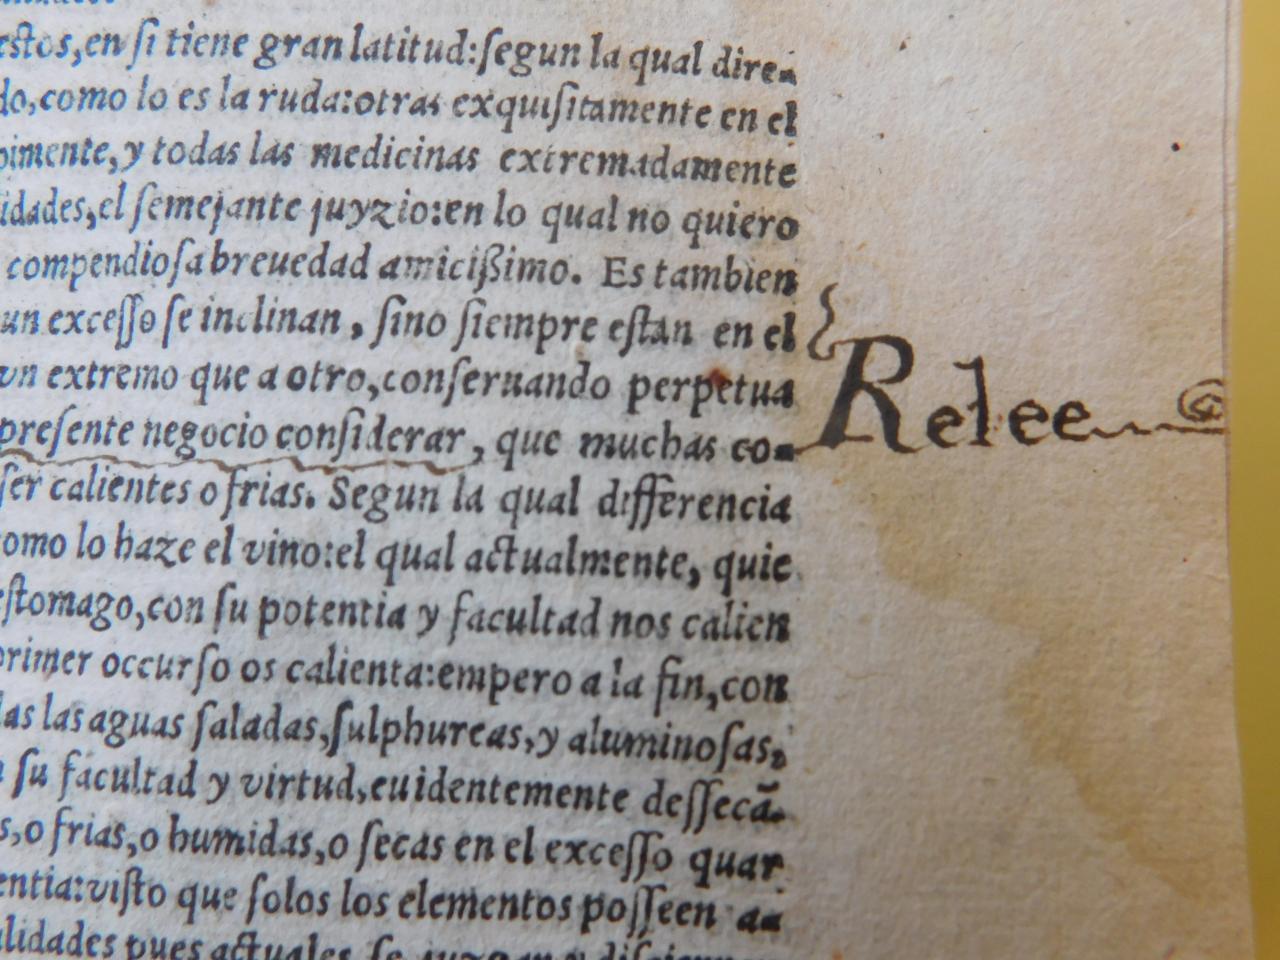 estos,en ſi tiene gran latitud:ſegun la qual dire-
do,como lo es la ruda:otras exquiſitamente en el
pimente,y todas las medicinas extremadamente
idades,el ſemejante juyzio:en lo qual no quiero
compendioſa breuedad amicißimo. Es tambien
un exceſſo ſe inclinan, ſino ſiempre eſtan en el
vn extremo que a otro,conſeruando perpetua
Relee
preſente negocio conſiderar, que muchas co-
ſer calientes o frias. Segun la qual differencia
omo lo haze el vino:el qual actualmente, quie
eſtomago,con ſu potentia y facultad nos calien
primer occurſo os calienta:empero a la fin,con
las las aguas ſaladas,ſulphureas,y aluminoſas,
ſu facultad y virtud,euidentemente deſſecã-
s,o frias,o humidas,o ſecas en el exceſſo quar
entia:viſto que ſolos los elementos poſſeen a-
lidades pues actuales ſe